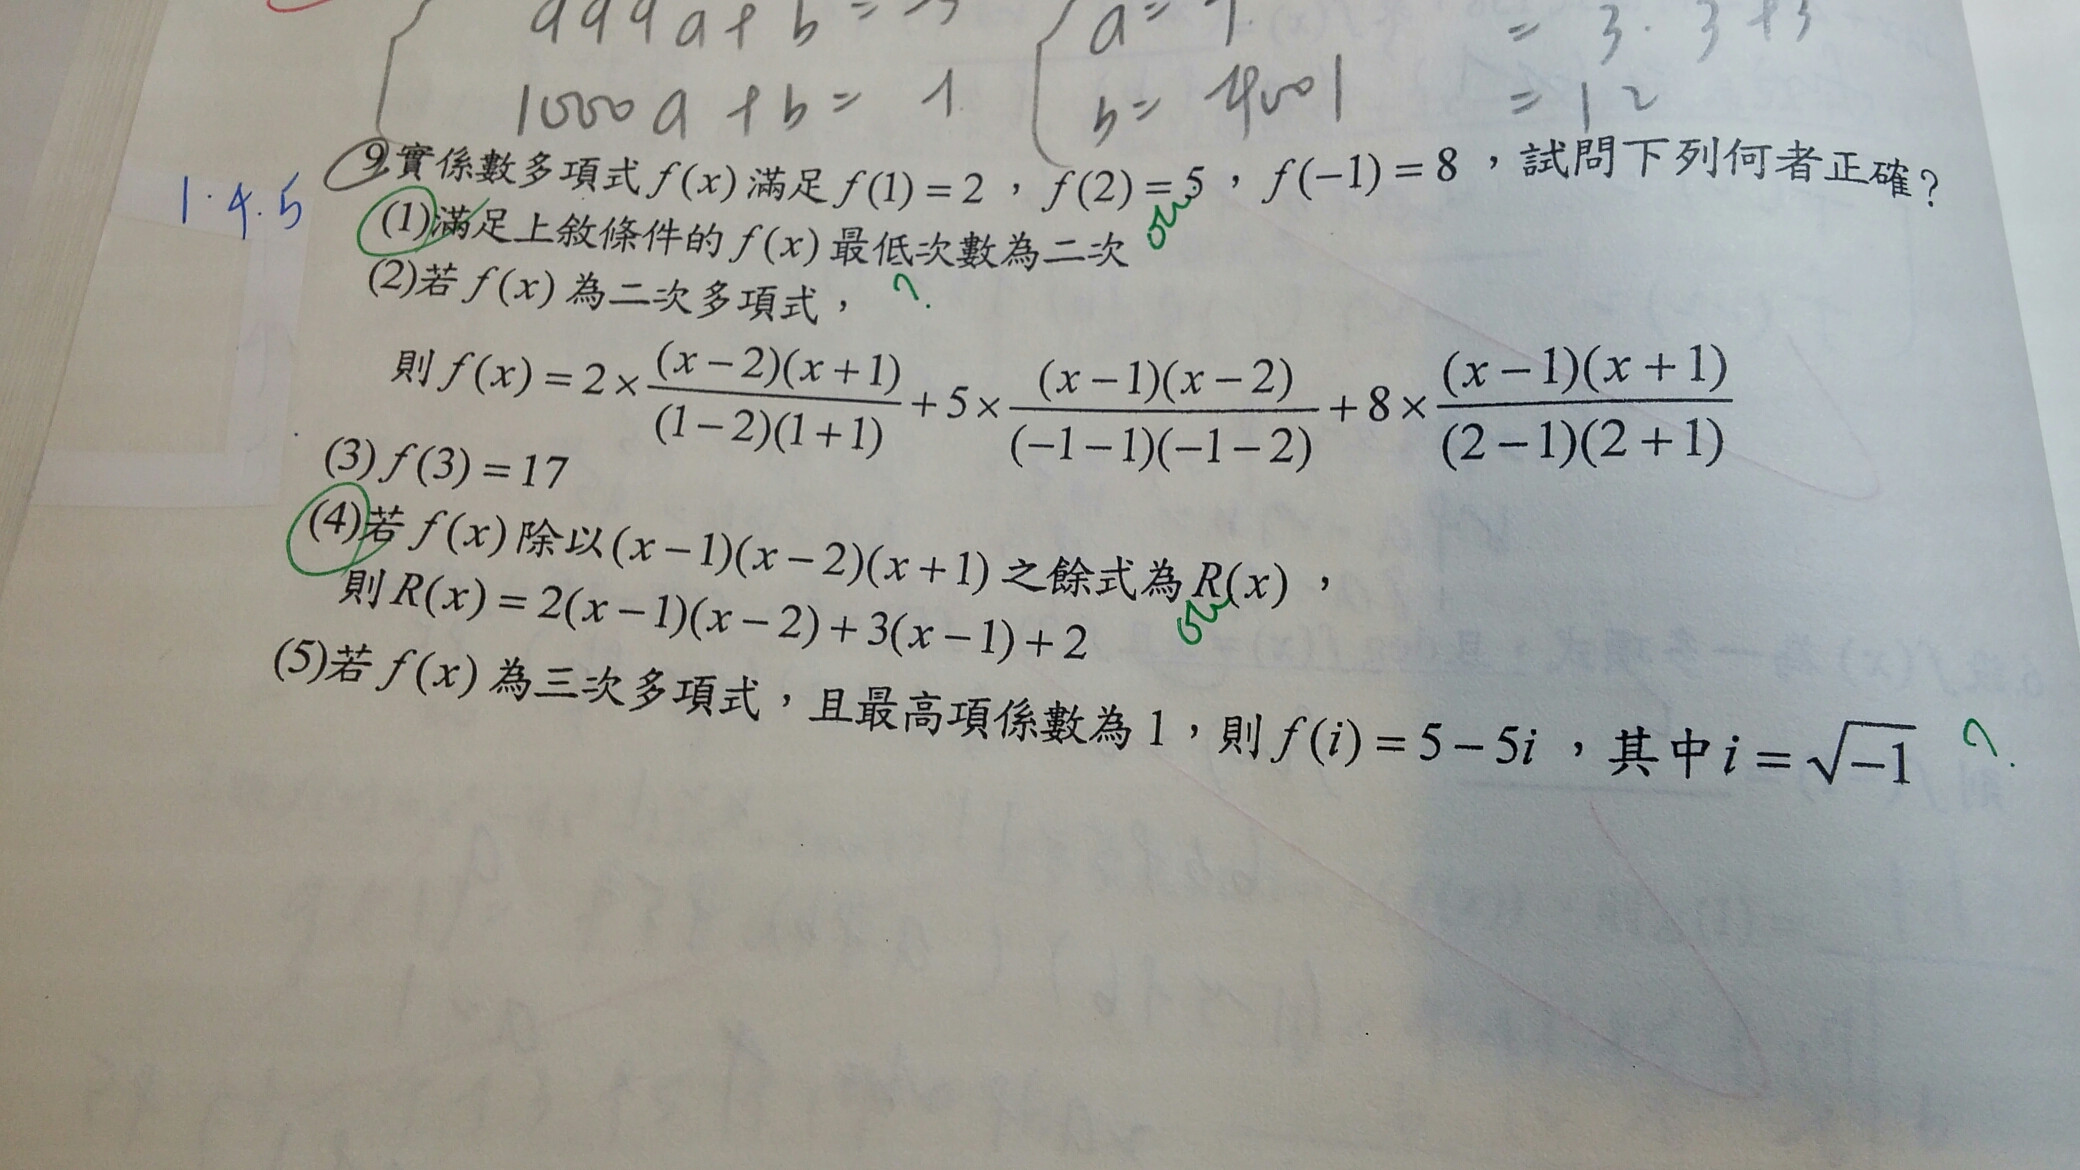 999a+b=
1000a+b= 1
a=
b= -4001
= 3·3+3
= 12
1.4.5
9.實係數多項式 f(x) 滿足 f(1)=2，f(2)=5，f(-1)=8，試問下列何者正確？
(1)滿足上敘條件的 f(x) 最低次數為二次
(2)若 f(x) 為二次多項式， ?
則 f(x)=2×\frac{(x-2)(x+1)}{(1-2)(1+1)}+5×\frac{(x-1)(x-2)}{(-1-1)(-1-2)}+8×\frac{(x-1)(x+1)}{(2-1)(2+1)}
(3) f(3)=17
(4)若 f(x) 除以 (x-1)(x-2)(x+1) 之餘式為 R(x)，
則 R(x)=2(x-1)(x-2)+3(x-1)+2
(5)若 f(x) 為三次多項式，且最高項係數為 1，則 f(i)=5-5i，其中 i=√-1 ?